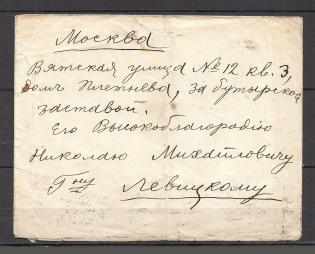 Москва
Вятская улица № 12 кв. 3,
домъ Плетнева, за бутырской
заставой.
Его Высокоблагородію
Николаю Михайловичу
Гну Левицкому